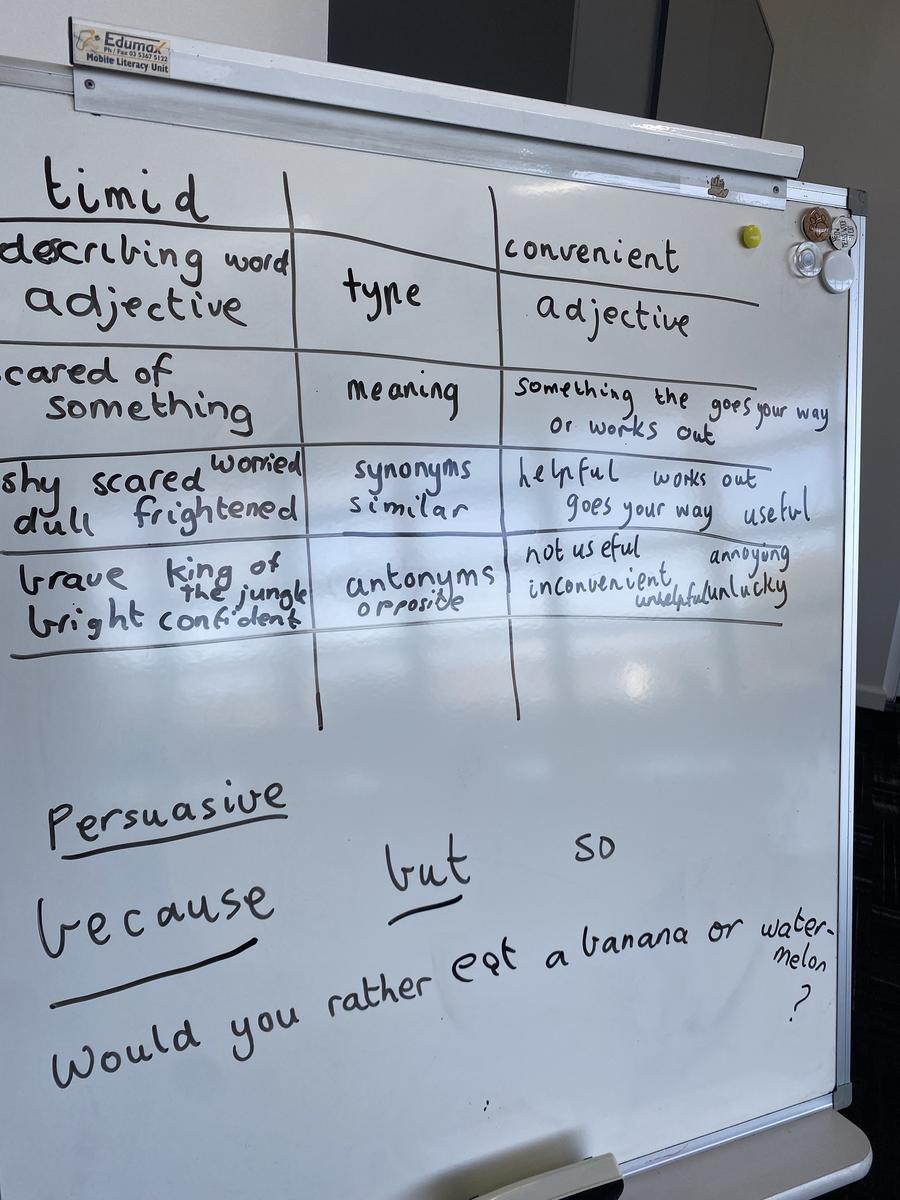 Edumax
Ph / Fax 03 5367 5122
Mobile Literacy Unit
timid
convenient
describing word
adjective
type
adjective
cared of
something
meaning
something the goes your way
or works out
shy scared worried
dull frightened
synonyms
similar
helpful works out
goes your way useful
brave king of
the jungle
bright confident
antonyms
opposite
not useful annoying
inconvenient
unhelpful unlucky
Persuasive
because but so
Would you rather eat a banana or water-
melon
?